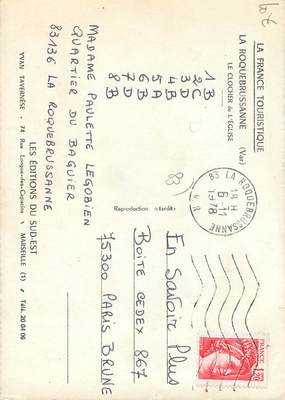 LA FRANCE TOURISTIQUE
LA ROQUEBRUSSANNE (Var)
LE CLOCHER de L'ÉGLISE
1B
2C
3D
4B
5A
6B
7D
8B
MADAME PAULETTE LEGOBIEN
QUARTIER DU BAGUIER
83136 LA ROQUEBRUSSANNE
83
Reproduction interdite
83 LA ROQUEBRUSSANNE
18 H
6-11
1978
VAR
En Savoir Plus
BOITE CEDEX 867
75300 PARIS BRUNE
FRANCE
1,20
LES ÉDITIONS DU SUD-EST
YVAN TAVERNÈSE - 74 Rue Longue-des-Capucins MARSEILLE (1) Télé. 20 04 06